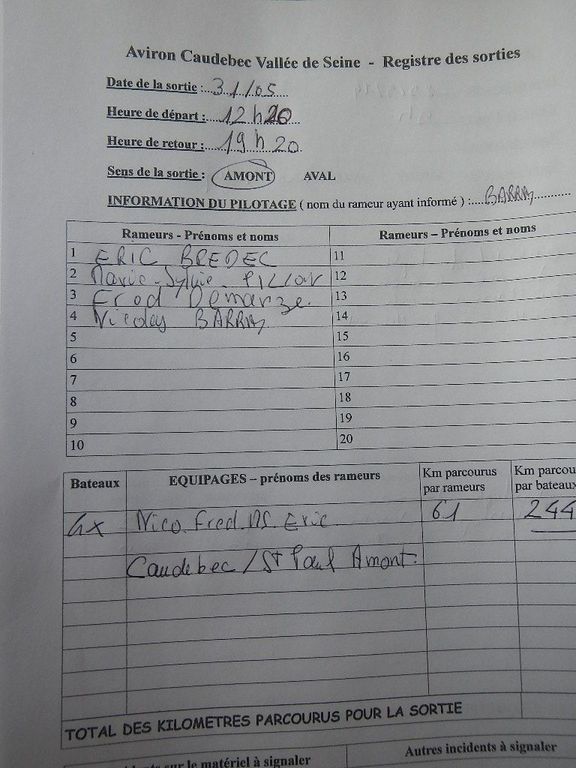 Aviron Caudebec Vallée de Seine - Registre des sorties
Date de la sortie :...31/05
Heure de départ :...12 h 20
Heure de retour :...19 h 20
Sens de la sortie : AMONT AVAL
INFORMATION DU PILOTAGE ( nom du rameur ayant informé ) :....BARRAY
Rameurs - Prénoms et noms Rameurs – Prénoms et noms
1 ERIC BREDEC 11
2 Marie-Sylvie 12
3 Fred Demarze 13
4 Nicolas BARRAY 14
5 15
6 16
7 17
8 18
9 19
10 20
Bateaux EQUIPAGES – prénoms des rameurs Km parcourus par rameurs Km parcou par bateaux
4x Nico Fred MS Eric 61 244
Caudebec / St Paul Amont.
TOTAL DES KILOMETRES PARCOURUS POUR LA SORTIE
sur le matériel à signaler Autres incidents à signaler